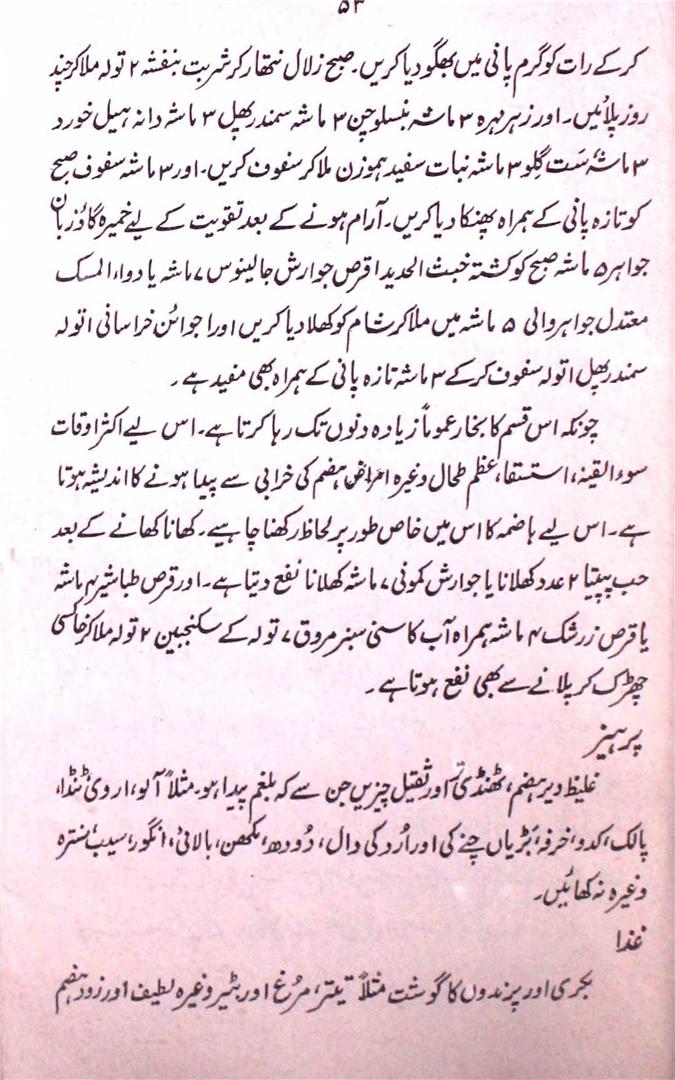 ۵۳
کر کے رات کو گرم پانی میں بھگو دیا کریں۔ صبح زلال نتھار کر شربت بنفشہ ۲ تولہ ملا کر چند
روز پلائیں۔ اور زہر مہرہ ۳ ماشہ بنسلوچن ۳ ماشہ سمندر پھل ۳ ماشہ دانہ ہیل خورد
۳ ماشہ، ست گلو ۳ ماشہ نبات سفید ہموزن ملا کر سفوف کریں۔ اور ۳ ماشہ سفوف صبح
کو تازہ پانی کے ہمراہ پھنکا دیا کریں۔ آرام ہونے کے بعد تقویت کے لیے خمیرہ گاؤزبان
جواہر ۵ ماشہ صبح کو کشتہ خبث الحدید ا قرص جوارش جالینوس ۷ ماشہ یا دواء المسک
معتدل جواہر والی ۵ ماشہ میں ملا کر شام کو کھلا دیا کریں اور اجوائن خراسانی ا تولہ
سمندر پھل ا تولہ سفوف کر کے ۳ ماشہ تازہ پانی کے ہمراہ بھی مفید ہے۔
چونکہ اس قسم کا بخار عموماً زیادہ دنوں تک رہا کرتا ہے۔ اس لیے اکثر اوقات
سوء القینہ، استسقا، عظم طحال وغیرہ امراض ہضم کی خرابی سے پیدا ہونے کا اندیشہ ہوتا
ہے۔ اس لیے ہاضمہ کا اس میں خاص طور پر لحاظ رکھنا چاہیے۔ کھانا کھانے کے بعد
حب پپیتا ۲ عدد کھلانا یا جوارش کمونی ۷ ماشہ کھلانا نفع دیتا ہے۔ اور قرص طباشیر ۴ ماشہ
یا قرص زرشک ۴ ماشہ ہمراہ آب کاسنی سبز مروق ۷ تولہ کے سکنجبین ۲ تولہ ملا کر خاکسی
چھڑک کر پلانے سے بھی نفع ہوتا ہے۔
پرہیز
غلیظ دیر ہضم، ٹھنڈی تر اور ثقیل چیزیں جن سے کہ بلغم پیدا ہو۔ مثلاً آلو، اروی، ٹنڈا،
پالک، کدو، خرفہ، بڑیاں چنے کی اور اُرد کی دال، دودھ، مکھن، بالائی، انگور، سیب، سنترہ
وغیرہ نہ کھائیں۔
غذا
بکری اور پرندوں کا گوشت مثلاً تیتر، مرغ اور بٹیر وغیرہ لطیف اور زود ہضم